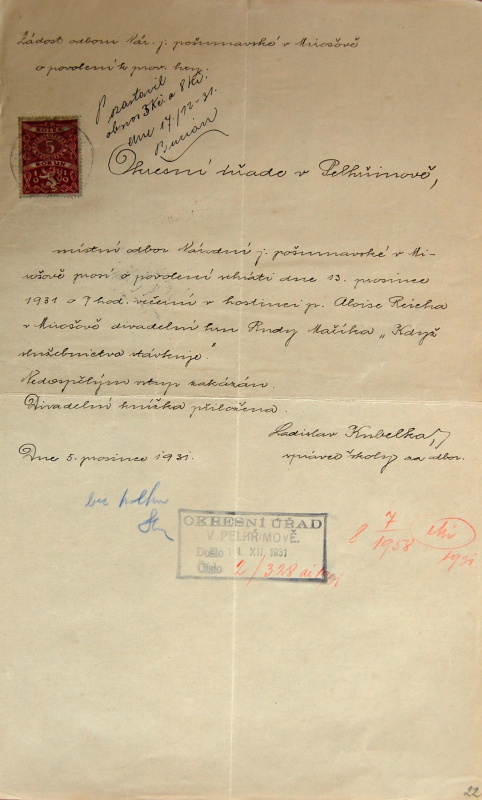 Žádost odboru Nár. j. pošumavské v Mirošově
o povolení k prov. her.
obnos 3 Kč. a 8 Kč.
dne 17/12 - 31.
KOLEK
5
KORUN
Okresní úřade v Pelhřimově,
místní odbor Národní j. pošumavské v Mi-
rošově prosí o povolení sehráti dne 13. prosince
1931 o 7 hod. večerní v hostinci p. Aloise Reicha
v Mirošově divadelní hru Rudy Maříka „Když
služebnictvo stávkuje."
Nedospělým vstup zakázán.
Divadelní knížka přiložena.
Ladislav Kubelka,
správce školy za odbor.
Dne 5. prosince 1931.
OKRESNÍ ÚŘAD
V PELHŘIMOVĚ.
Došlo 11. XII. 1931
Číslo 2/328 ai 1931
8 7
1958
1931
22